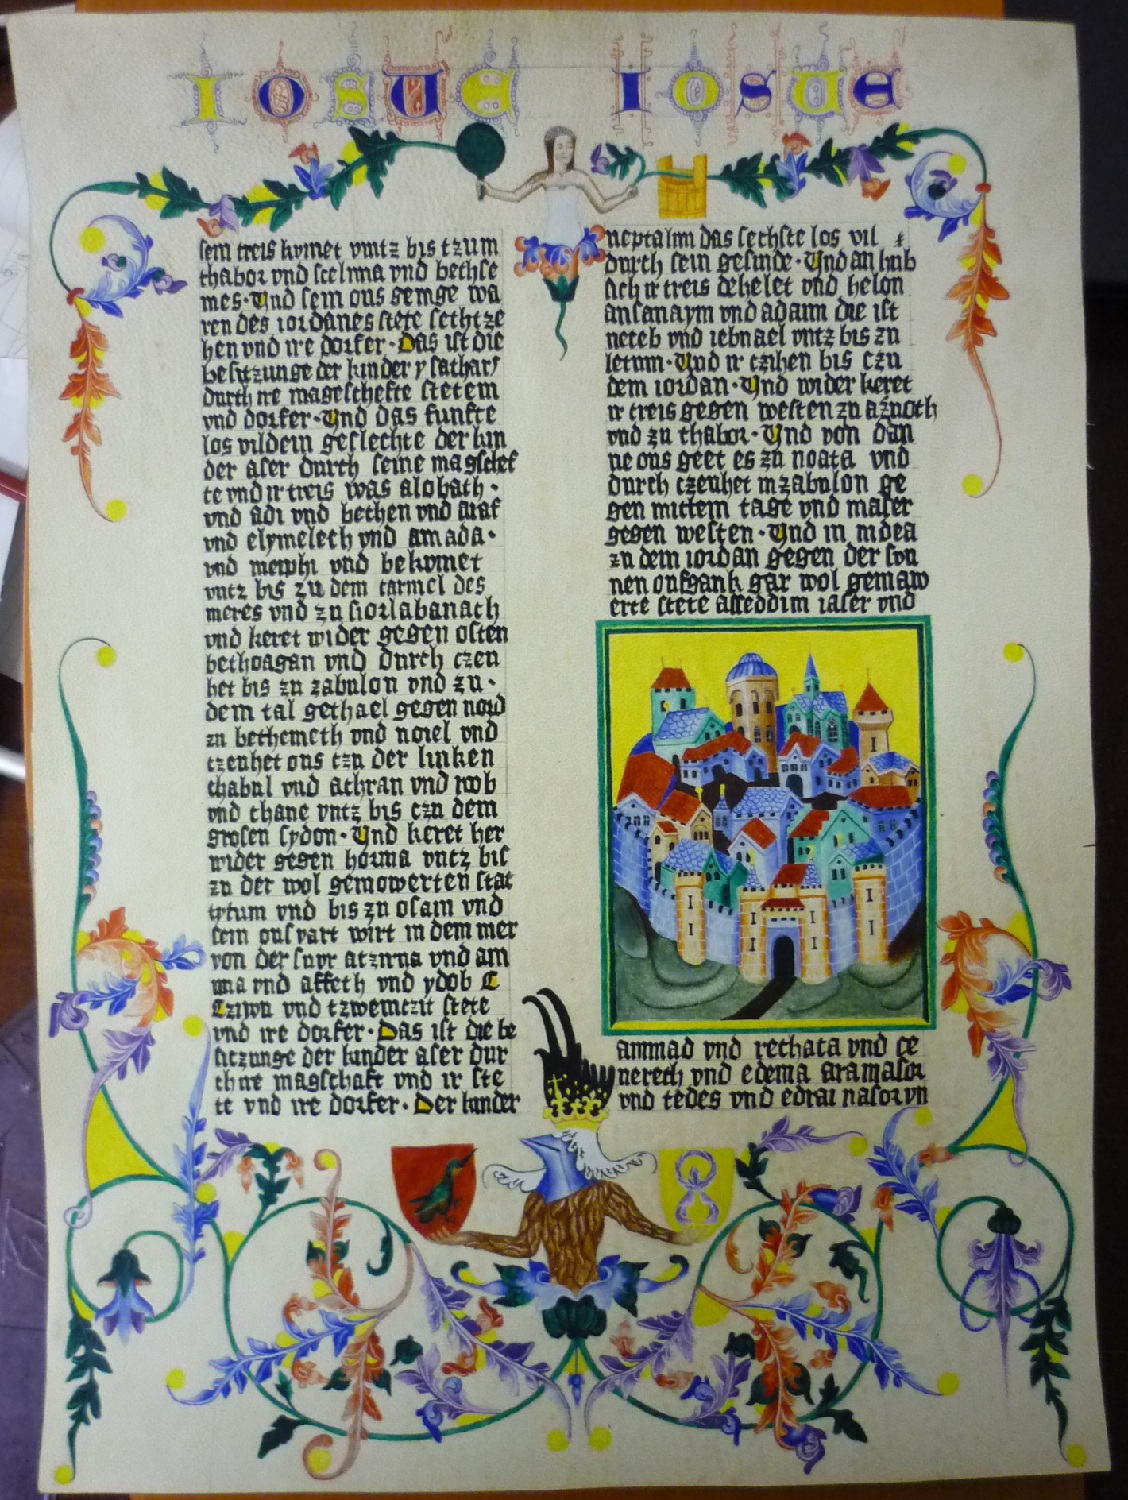 IOSUE IOSUE
sein treis kvmet vntz bis tzum
thabor vnd seelma vnd bethse
mes · Und sein ons gemge wa
ren des iordanes stete sechtze
hen vnd ire dorfer · Das ist die
besitzunge der kinder ysathars
durch ire mageschefte stetem
vnd dorfer · Und das funfte
los vildem geslechte der kin
der aser durch seine magschef
te vnd ir treis was alohath ·
vnd adi vnd bethen vnd araf
vnd elymelech vnd amada ·
vnd mewhi vnd bekvmet
vntz bis zu dem carmel des
meres vnd zu siorlabanach
vnd keret wider gegen osten
bethoagan vnd durch czeu
het bis zu zabulon vnd zu ·
dem tal gethael gegen nord
zu bethemeth vnd noiel vnd
tzeuhet ons tzu der linken
thabul vnd athran vnd rob
vnd thane vntz bis czu dem
grosen sydon · Und keret her
wider gegen horma vntz bis
zu der wol gemowerten stat
tytum vnd bis zu osam vnd
sein ousvart wirt in dem mer
von der snvr atzma vnd am
ma vnd affeth vnd ydob
Tzwu vnd tzwemtzit stete
vnd ire dorfer · Das ist die be
sitzunge der kinder aser dur
ch ire magschaft vnd ir ste
te vnd ire dorfer · Der kinder
neptalim das sechste los vil
durch sein gesinde · Und an hub
sich ir treis dehelet vnd helon
ansanaym vnd adami die ist
neceb vnd iebnael vntz bis zu
letum · Und ir tzihen bis czu
dem iordan · Und wider keret
ir treis gegen westen zu aznoth
vnd zu thabor · Und von dan
ne ons geet es zu noata vnd
durch czeuhet in zabulon ge
gen mittem tage vnd in aser
gegen westen · Und in iudea
zu dem iordan gegen der sun
nen oufgank gar wol gemaw
erte stete asseddim iaser vnd
ammad vnd rechata vnd ce
nereth vnd edema aramasor
vnd tedes vnd edrai nasor vn